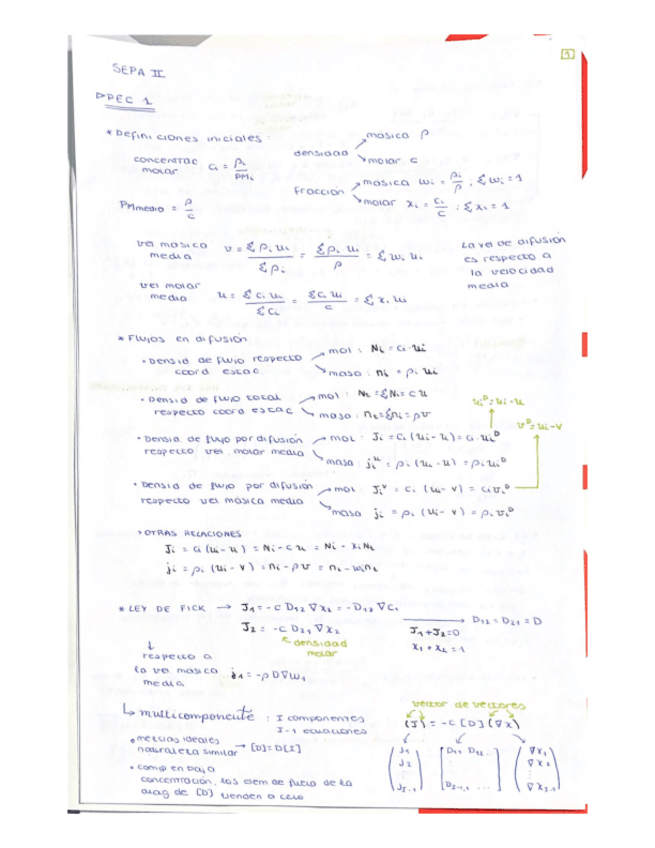 1
SEPA II
▷PEC 1
* Definiciones iniciales:
densidad ↗ másica ρ
↘ molar c
concentrac molar Ci = ρi / PMi
fracción ↗ másica ωi = ρi/ρ ; Σωi = 1
↘ molar xi = Ci/C ; Σxi = 1
PMmedio = ρ/c
vel másica media v = Σρi ui / Σρi = Σρi ui / ρ = Σωi ui
La vel de difusión
es respecto a
la velocidad
media
vel molar media u = Σci ui / Σci = Σci ui / c = Σxi ui
* Flujos en difusión
• Densid. de flujo respecto coord. estac ↗ mol : Ni = ci·ui
↘ masa : ni = ρi ui
• Densid de flujo total respecto coord estac ↗ mol : Nt = ΣNi = cu
↘ masa : nt = Σni = ρv
uiᴰ = ui - u
vᴰ = ui - v
• Densid. de flujo por difusión respecto vel. molar media ↗ mol : Ji = ci (ui - u) = ci uiᴰ
↘ masa : jiᵘ = ρi (ui - u) = ρi uiᴰ
• Densid de flujo por difusión respecto vel másica media ↗ mol : Jiᵛ = ci (ui - v) = ci viᴰ
↘ masa ji = ρi (ui - v) = ρi viᴰ
> OTRAS RELACIONES
Ji = ci (ui - u) = Ni - c u = Ni - xi Nt
ji = ρi (ui - v) = ni - ρv = nt - wi nt
* LEY DE FICK → J1 = -c D12 ∇x1 = -D12 ∇c1
J2 = -c D21 ∇x2
J1+J2=0
x1 + x2 = 1
→ D12 = D21 = D
densidad
molar
↓
respecto a
la vel másica j1 = -ρ D∇w1
media
↳ multicomponente : I componentes
I-1 ecuaciones
vector de vectores
(J) = -c [D] (∇x)
• mezclas ideales
naturaleza similar → [D] = D[I]
(J1 J2 ⋮ JI-1) [D11 D12.. ⋮ DI-1,1 ...] (∇x1 ∇x2 ⋮ ∇xI-1)
• comp en baja
concentración, los elem de fuera de la
diag de [D] tienden a cero